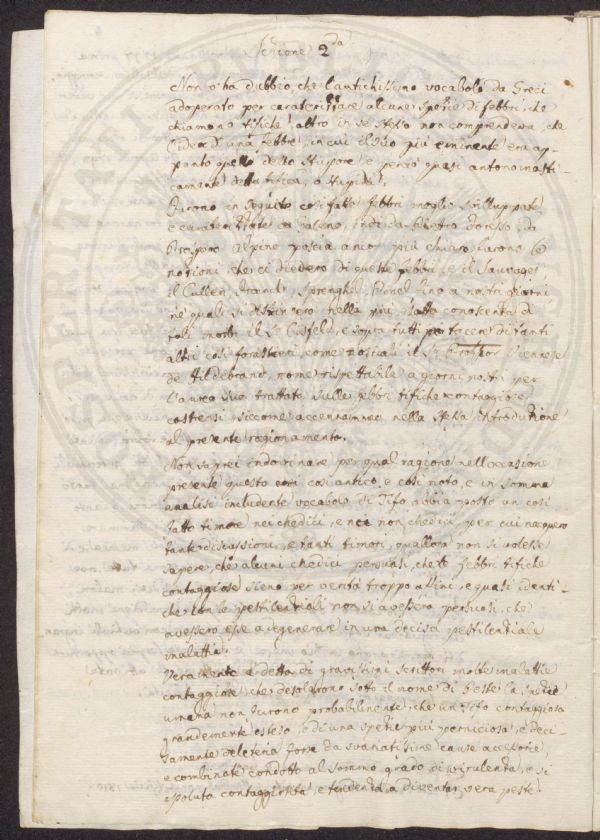 Sezione 2da
Non v'ha dubbio, che l'antichissimo vocabolo da Greci
adoperato per caraterizzare alcune spezie di febbri, che
chiamano tifiche, altro in se stesso non comprendeva, che
l'idea d'una febbre, in cui il più eminente era ap-
punto quello dello stupore, e perciò quasi antonomasti-
camente detta tifica, o stupida.
Furono in seguito così fatte febbri meglio sviluppate
e caraterizzate da Galeno, indi da da
Prospero Alpino poscia anco più chiare furono le
nozioni, che ci diedero di queste febbri, e il Sauvages,
il Cullen, Franck, Sprenghel, Pinel fino a nostri giorni
ne quali si distinsero nella più esatta conoscenza di
tali morbi il Sr. e sopra tutti per tacere di tanti
altri così forastieri, come nostrali il Sr. Viennese
de Hildebrand, nome rispettabile a giorni nostri per
l'aureo suo trattato sulle febbri tifiche contaggiose
costensi siccome accennammo nella stessa introduzione
al presente ragionamento.
Non saprei indovinare per qual ragione nell'occasione
presente questo così antico, e così noto, e in somma
analisi includente vocabolo di Tifo abbia posto un così
fatto timore nei Medici, e nei non Medici, per cui nacquero
tante discussioni, e tanti timori, quallora non si volesse
sapere, che alcuni Medici persuasi, che le febbri tifiche
contaggiose sieno per verità troppo affini, e quasi identi-
che con le pestilenziali non si avessero persuasi, che
avessero esse a degenerare in una decisa pestilenziale
malattia.
Veramente a detta di gravissimi scrittori molte malattie
contaggiose, che desolarono sotto il nome di Peste la spezie
umana non furono probabilmente, che un tifo contaggioso
grandemente esteso, e di una spezie più perniciosa, e deci-
samente deleteria forse da svariatissime cause accessorie,
e combinate condotto al sommo grado di virulenza, e
contaggiosità, e tendenza a diventar vera peste.